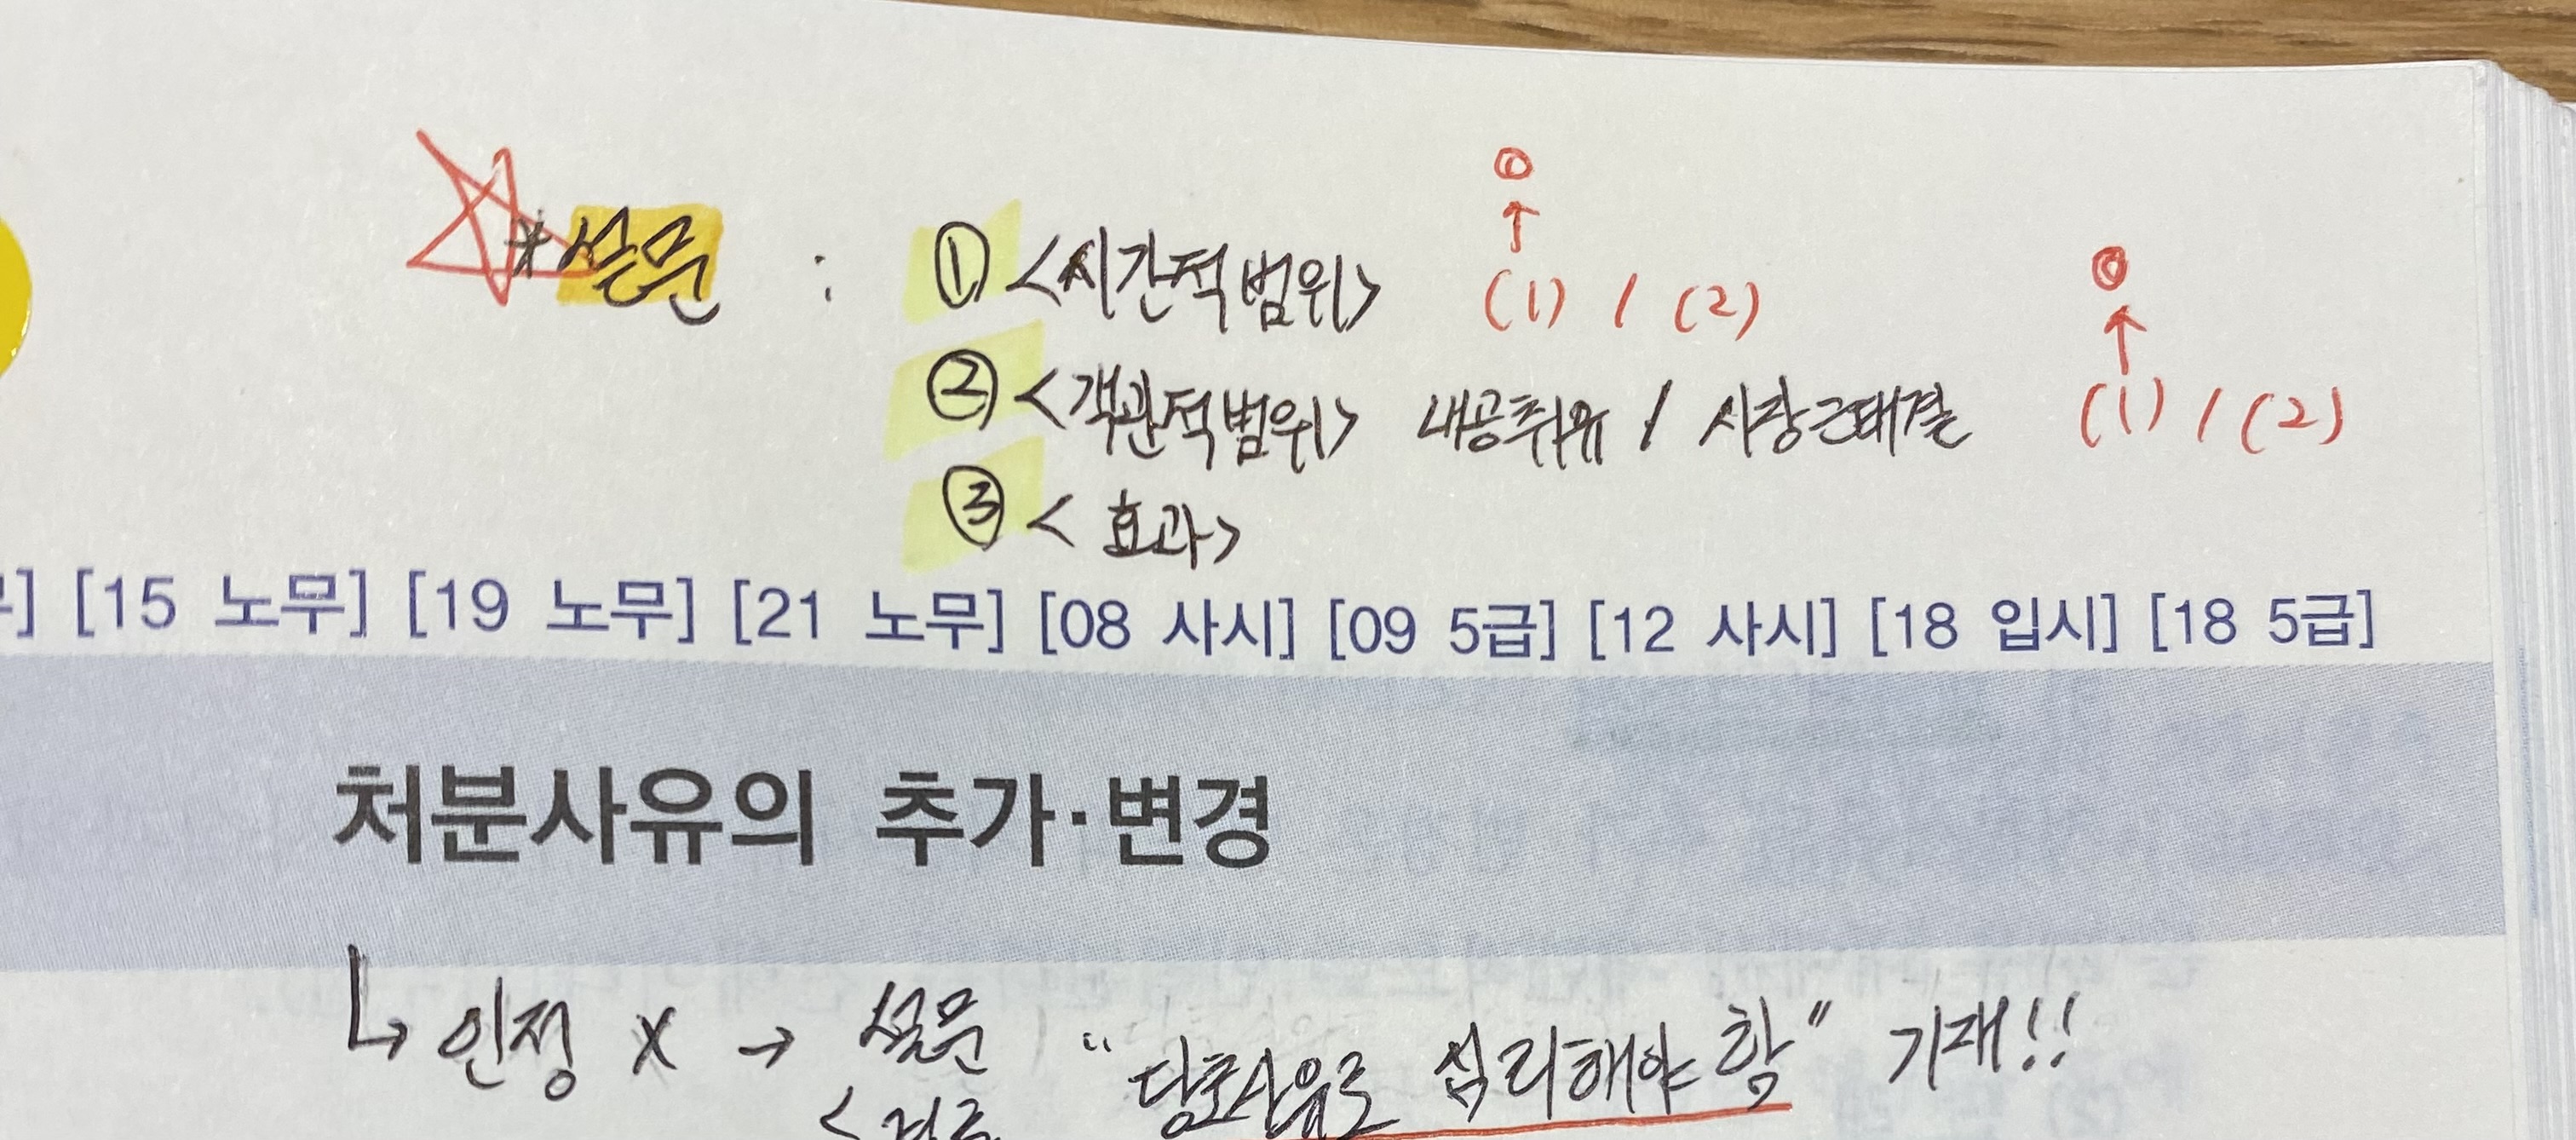 *설문 : ① <시간적 범위> (1) / (2)
② <객관적 범위> 내공취유 / 시장근태결 (1) / (2)
③ <효과>
] [15 노무] [19 노무] [21 노무] [08 사시] [09 5급] [12 사시] [18 입시] [18 5급]
처분사유의 추가·변경
↳ 인정 X → 설문 "당초사유로 심리해야 함" 기재!!
<